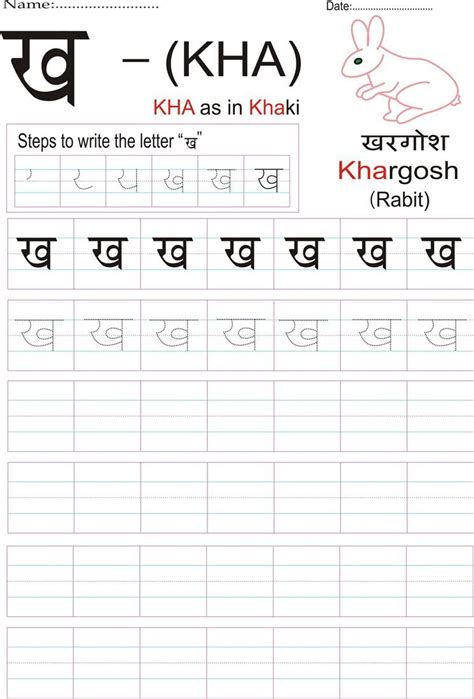 Name:.......................... Date:..............................
ख – (KHA)
KHA as in Khaki
Steps to write the letter “ख”
ख
खरगोश
Khargosh
(Rabit)
ख ख ख ख ख ख ख
ख ख ख ख ख ख ख